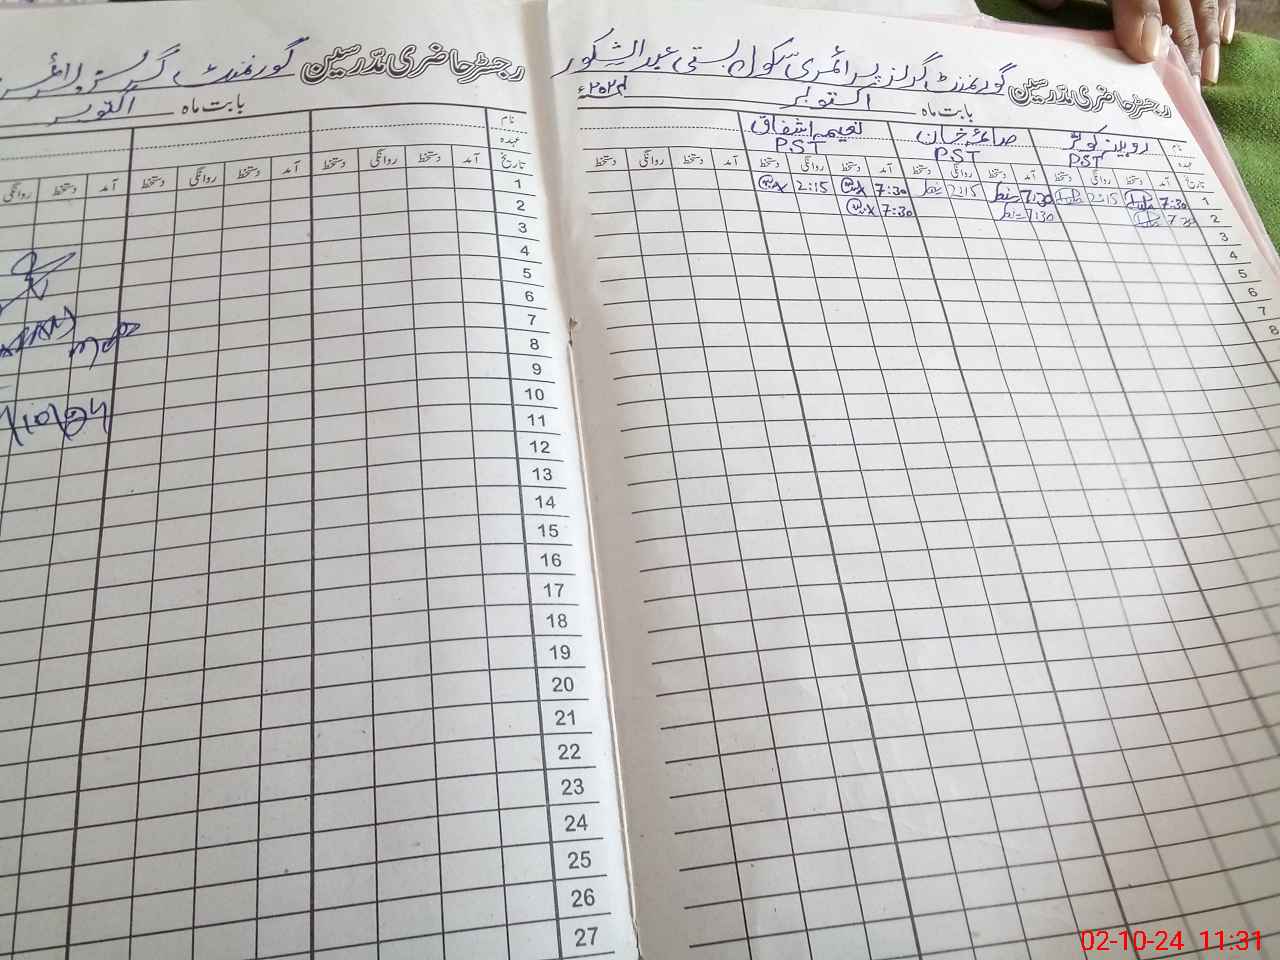 رجسٹر حاضری مدرسین گورنمنٹ گرلز پرائمری سکول بستی عبدالشکور
بابت ماہ اکتوبر ۲۰۲۴ء
نام روبینہ کوثر صائمہ خان نعیمہ اشفاق
عہدہ PST PST PST
تاریخ آمد دستخط روانگی دستخط آمد دستخط روانگی دستخط آمد دستخط روانگی دستخط آمد دستخط روانگی دستخط
1 7:30 2:15 7:30 2:15 7:30 2:15
2 7:30 7:30 7:30
3
4
5
6
7
8
رجسٹر حاضری مدرسین گورنمنٹ گرلز
بابت ماہ اکتوبر
نام
عہدہ
تاریخ آمد دستخط روانگی دستخط آمد دستخط روانگی دستخط آمد دستخط روانگی
1
2
3
4
5
6
7
8
9
10
11
12
13
14
15
16
17
18
19
20
21
22
23
24
25
26
27
02-10-24 11:31